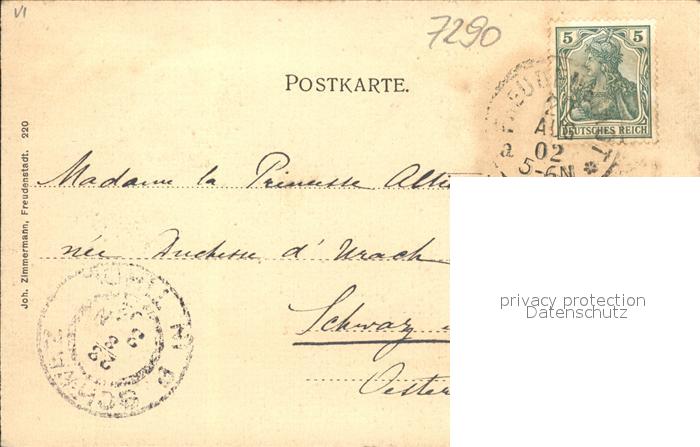 VI
7290
5 5
DEUTSCHES REICH
POSTKARTE.
AUG
a 02
5-6N
Joh. Zimmermann, Freudenstadt. 220
Madame la Princesse
née Duchesse d'Urach
Schwaz
privacy protection
Datenschutz